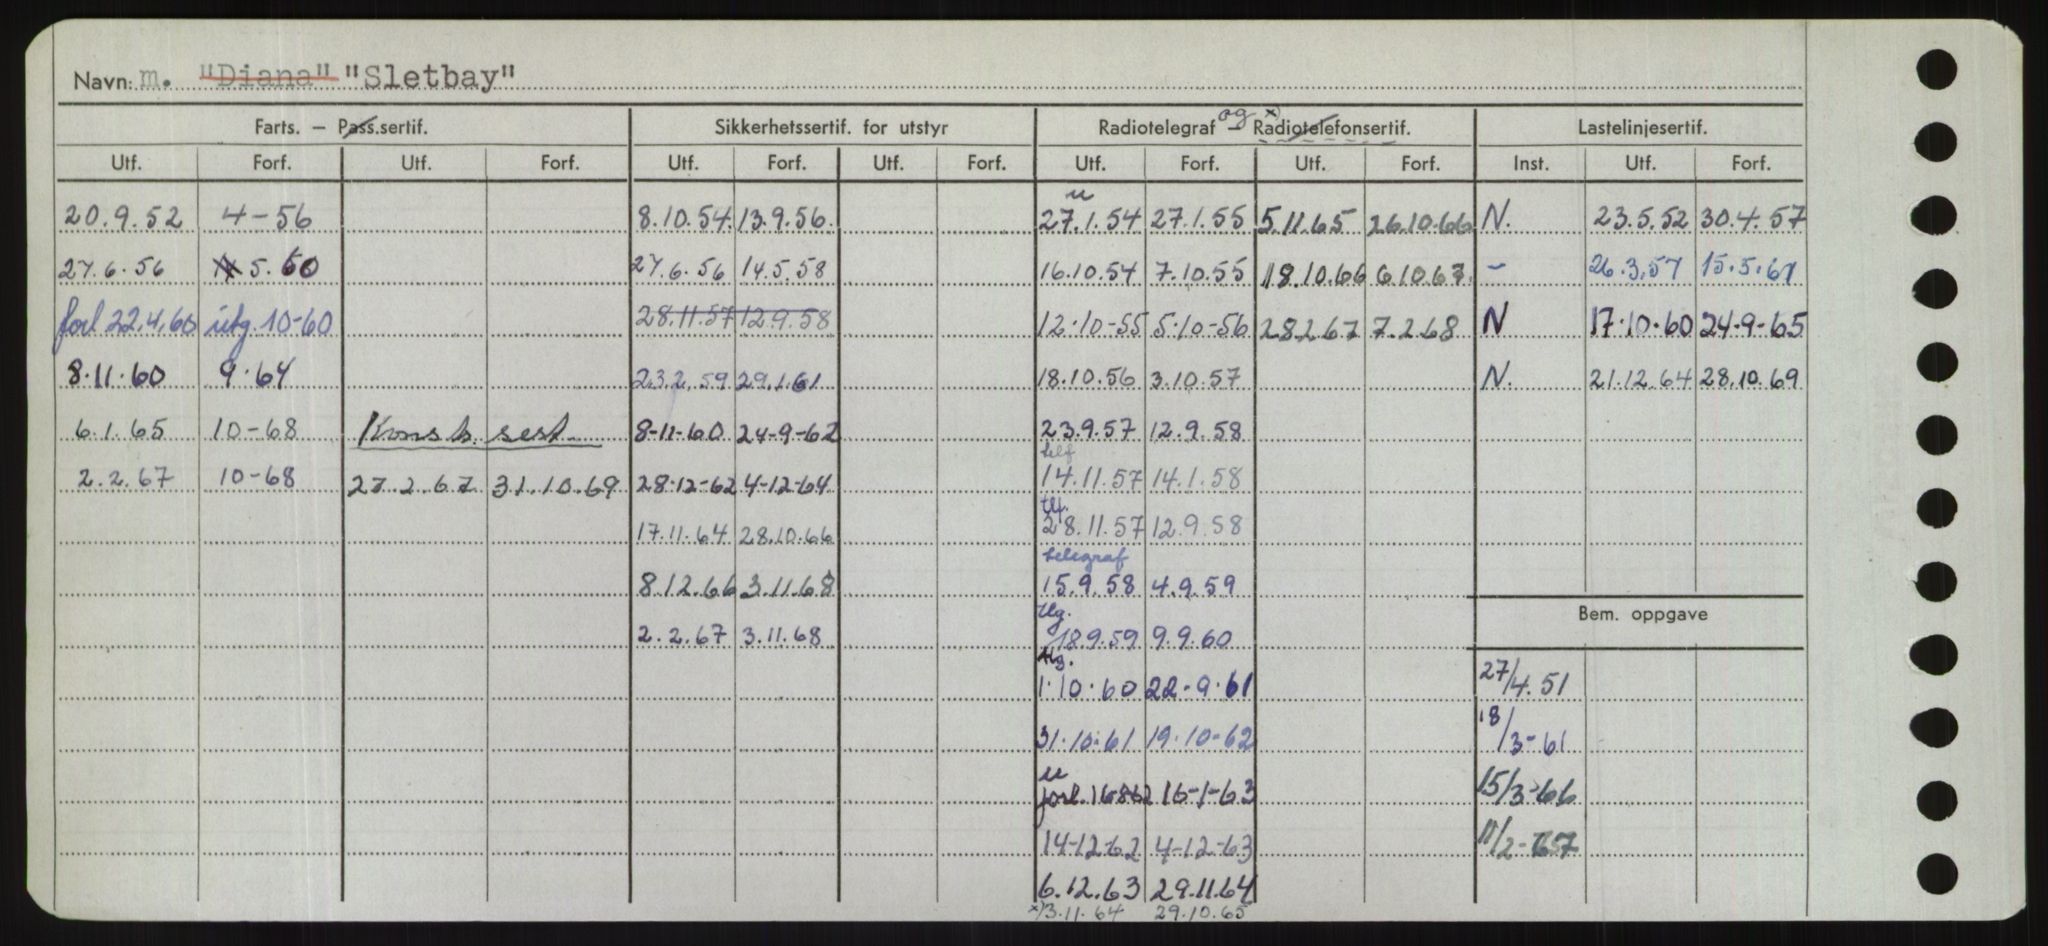 Navn: m. "Diana" "Sletbay"
Farts. – Pass.sertif. Sikkerhetssertif. for utstyr Radiotelegraf – og x) Radiotelefonsertif. Lastelinjesertif.
Utf. Forf. Utf. Forf. Utf. Forf. Utf. Forf. Utf. Forf. Utf. Forf. Inst. Utf. Forf.
u
20.9.52 4-56 8.10.54 13.9.56. 27.1.54 27.1.55 5.11.65 26.10.66 N. 23.5.52 30.4.57
27.6.56 5.60 27.6.56 14.5.58 16.10.54 7.10.55 18.10.66 6.10.67. – 26.3.57 15.5.61
forl. 22.4.60 utg. 10-60 28.11.57 12.9.58 12.10-55 5.10-56 28.2.67 7.2.68 N 17.10.60 24-9-65
8.11.60 9.64 23.2.59 29.1.61 18.10.56 3.10.57 N. 21.12.64 28.10.69
6.1.65 10-68 Konstr. sert. 8-11-60 24-9-62 23.9.57 12.9.58
telf
2.2.67 10-68 27.2.67 31.10.69 28-12-62 4-12-64 14.11.57 14.1.58
tlf.
17.11.64 28.10.66 28.11.57 12.9.58
telegraf
8.12.66 3.11.68 15.9.58 4.9.59
Bem. oppgave
tlg.
2.2.67 3.11.68 18.9.59 9.9.60
tlg.
1.10.60 22-9.61 27/4.51
31.10.61 19.10-62 18/3-61
u
forl. 16862 16-1-63 15/3-66
14-12-62 4-12-63 11/2-67
6.12.63 29.11.64
x) 3.11.64 29.10.65